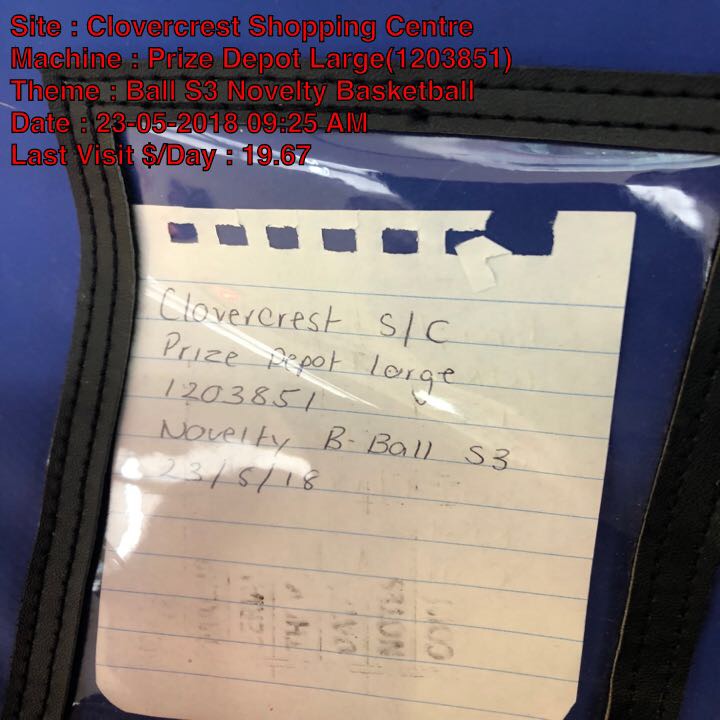 Site : Clovercrest Shopping Centre
Machine : Prize Depot Large(1203851)
Theme : Ball S3 Novelty Basketball
Date : 23-05-2018 09:25 AM
Last Visit $/Day : 19.67
Clovercrest S/C
Prize Depot large
1203851
Novelty B-Ball S3
23/5/18